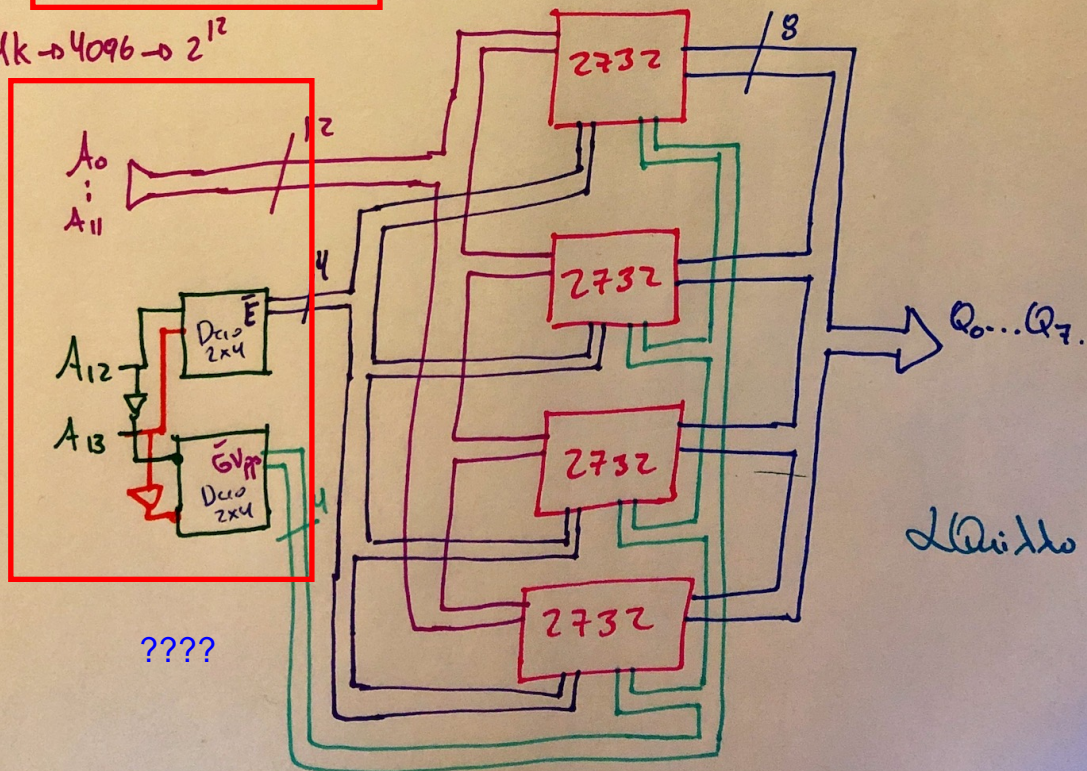 4k → 4096 → 2^12
12
8
A0
⋮
A11
2732
4
Ē
Deco
2x4
A12
A13
ḠVpp
Deco
2x4
4
2732
Q0...Q7.
2732
2732
????